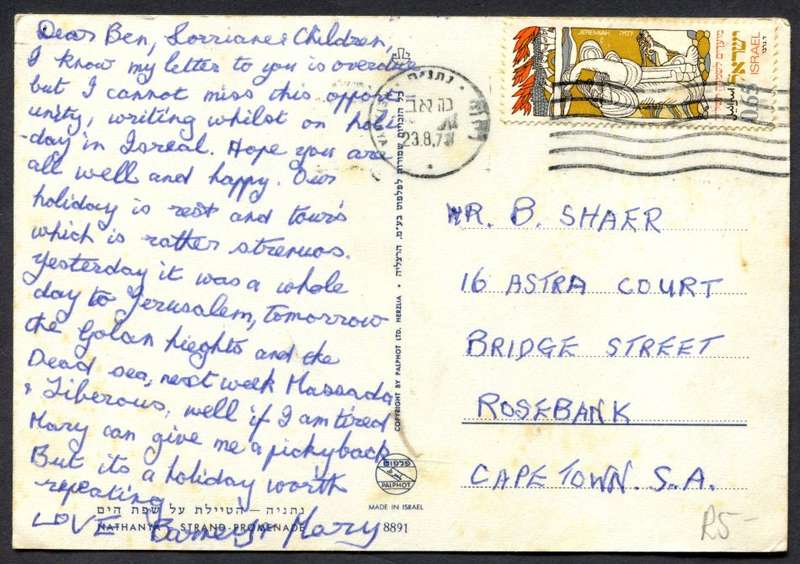 Dear Ben, Lorraine & Children,
I know my letter to you is overdue
but I cannot miss this opport-
unity, writing whilst on holi-
day in Isreal. Hope you are
all well and happy. Our
holiday is rest and tours
which is rather strenuos.
Yesterday it was a whole
day to Jerusalem, tomorrow
the Golan hieghts and the
Dead sea, next week Massada
& Tiberous, well if I am tired
Mary can give me a pickyback
But its a holiday worth
repeating
LOVE & Mary
נתניה – הטיילת על שפת הים
NATHANYA – STRAND-PROMENADE
8891
COPYRIGHT BY PALPHOT LTD. HERZLIA • כל הזכויות שמורות לפלפוט בע"מ, הרצליה
פלפוט
PALPHOT
MADE IN ISRAEL
נתניה
23.8.7
JEREMIAH ירמיה
ישראל
ISRAEL
0.65
MR. B. SHAER
16 ASTRA COURT
BRIDGE STREET
ROSEBANK
CAPE TOWN. S.A.
R5-